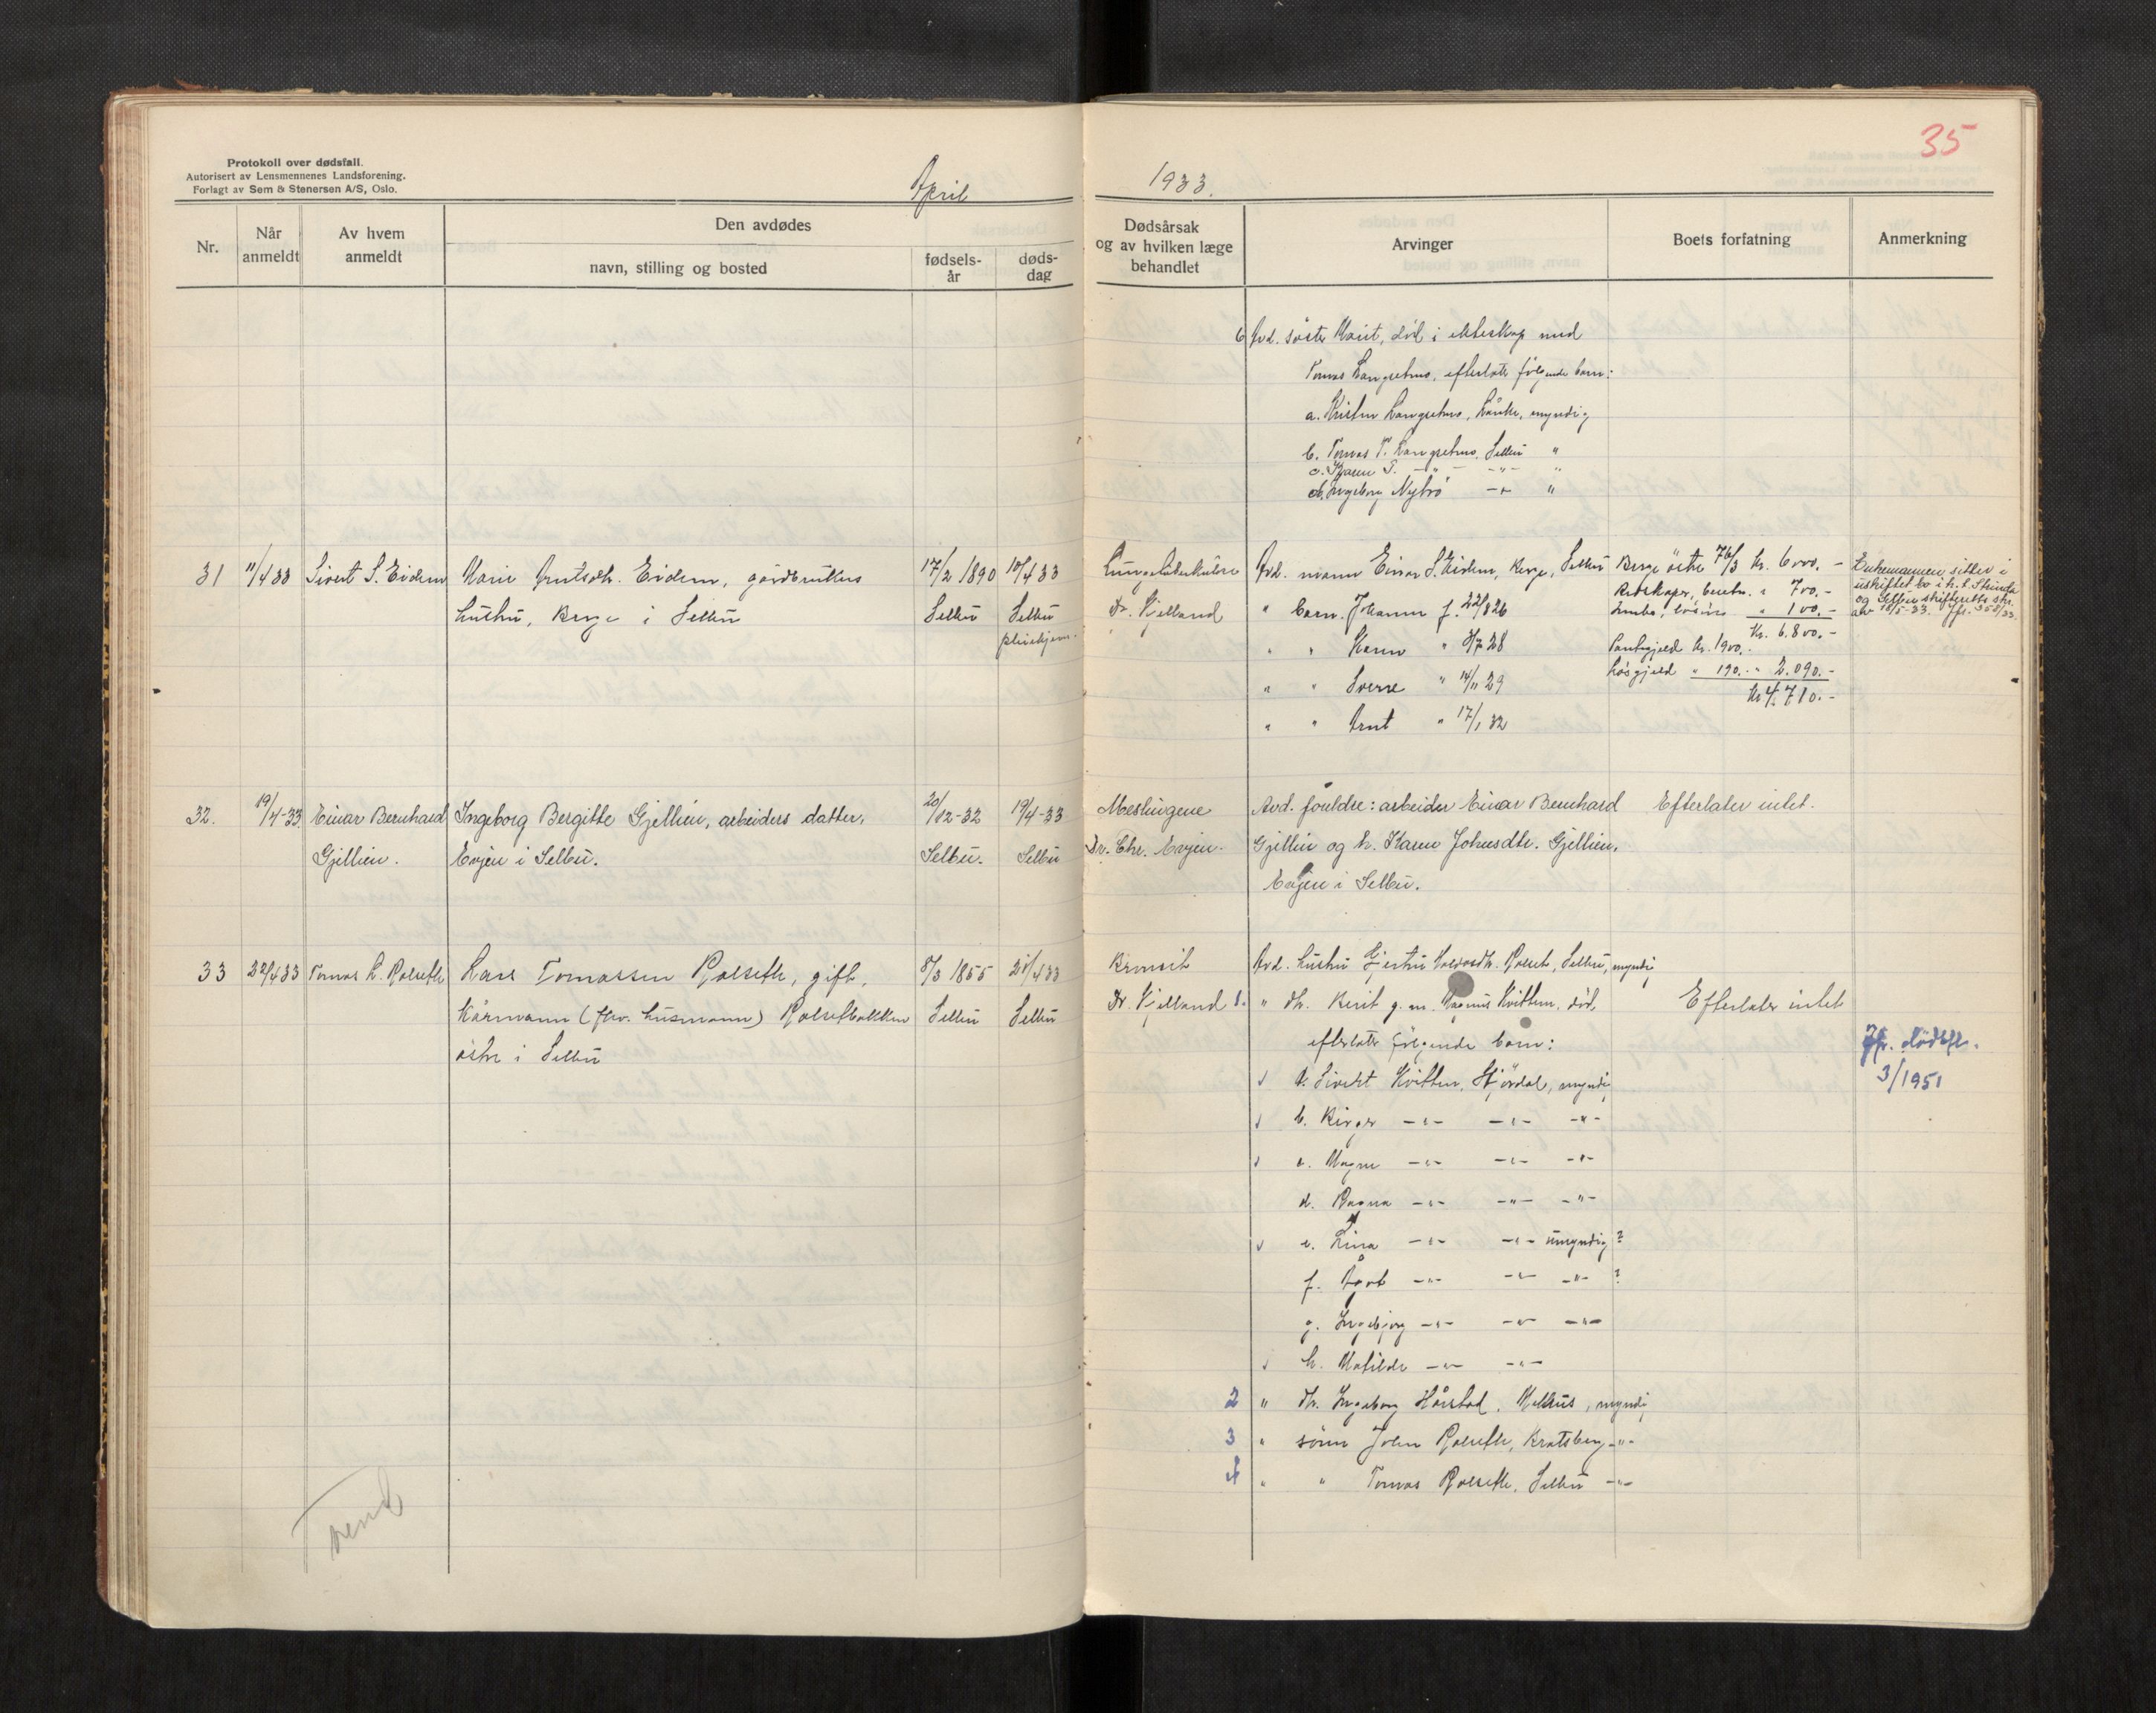 35
Protokoll over dødsfall.
Autorisert av Lensmennenes Landsforening.
Forlagt av Sem & Stenersen A/S, Oslo.
April
1933.
Nr.
Når anmeldt
Av hvem anmeldt
Den avdødes
navn, stilling og bosted
fødselsår
dødsdag
Dødsårsak og av hvilken læge behandlet
Arvinger
Boets forfatning
Anmerkning
6 Avd. søster Marit, død i ekteskap med
Tomas Langsetmo, efterlater følgende barn:
a. Langsetmo, Lånke, myndig
b. Tomas T. Langsetmo, Selbu "
c. Karen T. -"- -"- "
d. Ingeborg Nybro -"- "
31 11/4 33 Sivert S. Eidem Marie Arntsdtr. Eidem, gårdbrukers 17/2 1890 10/4 33
hustru, Berge i Selbu Selbu Selbu
pleiehjem.
Lungetuberkulose
Dr. Kjelland
Avd. mann Einar S. Eidem, Berge, Selbu
" barn Johann f. 22/8 26
" " Karen " 3/7 28
" " Sverre " 14/11 29
" " Arnt " 17/1 32
Berge østre 76/3 kr. 6000.-
Redskaper, besetn. " 700.-
Innbo, løsøre " 100.-
Kr. 6.800.-
Pantegjeld kr. 1900.-
Løsgjeld " 190.- " 2.090.-
Kr. 4.710.-
Enkemannen sitter i
uskiftet bo i h. t. Strinda
og Selbu skifteretts skr.
av 18/5-33. Jfr. 358/33.
32. 19/4-33 Einar Bernhard Ingeborg Bergitte Gjellien, arbeiders datter, 20/12-32 19/4-33
Gjellien. Evjen i Selbu. Selbu. Selbu
Meslingene
Dr. Chr. Evjen.
Avd. foreldre: arbeider Einar Bernhard
Gjellien og h. Karen Johnsdtr. Gjellien.
Evjen i Selbu.
Efterlater intet.
33 22/4 33 Tomas L. Rolseth Lars Tomassen Rolseth, gift, 8/3 1855 21/4 33
Kårmann (fhv. husmann) Rolsetbakken Selbu Selbu
østre i Selbu
Bronsit
Dr. Kjelland
Avd. hustru Gjertru Halvorsdtr. Rolset, Selbu, myndig
1. " dtr. Berit g. m. Magnus Kvitten, død,
efterlater følgende barn:
a. Sivert Kvitten, Stjørdal, myndig
b. Birger -"- -"- -"-
c. Magne -"- -"- -"-
d. Ragna -"- -"- -"-
e. Lina -"- -"- umyndig ?
f. Ågot -"- -"- -"- ?
g. Ingebjørg -"- -"- -"-
h. Matilde -"- -"-
2 " dtr. Ingeborg Hårstad, Melhus, myndig
3 " sønn John Rolseth, Bratsberg -"-
4 " " Tomas Rolseth, Selbu -"-
Efterlater intet
Jfr. dødsfl.
3/1951